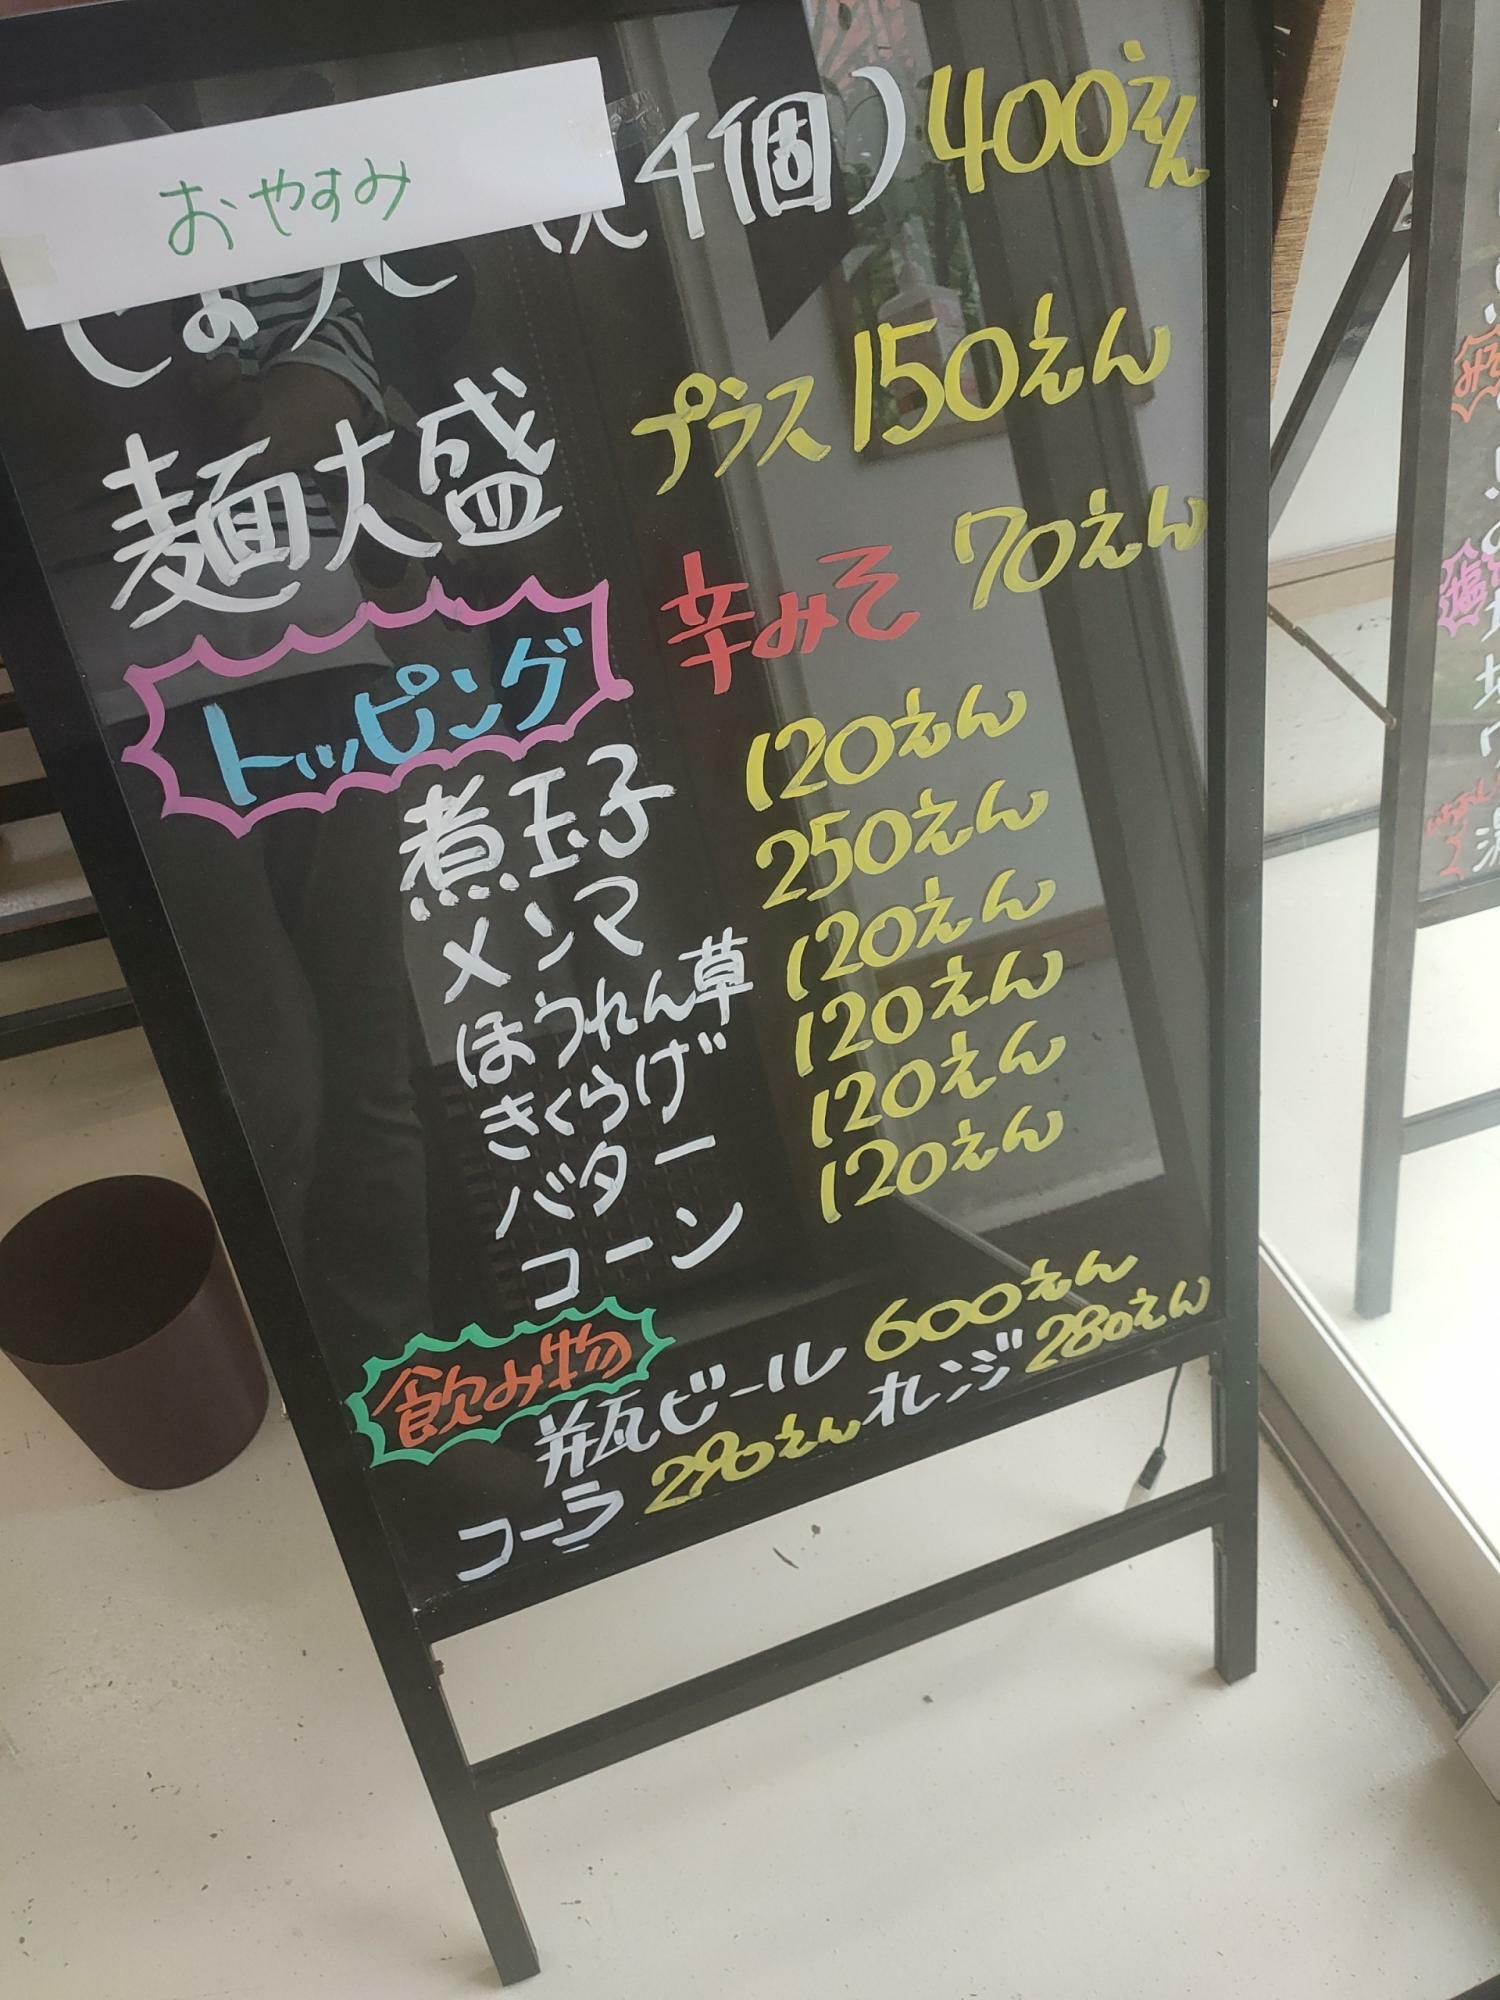 おやすみ
4個) 400えん
麺大盛 プラス150えん
トッピング 辛みそ 70えん
煮玉子 120えん
メンマ 250えん
ほうれん草 120えん
きくらげ 120えん
バター 120えん
コーン 120えん
飲み物 瓶ビール 600えん
コーラ 290えん オレンジ 280えん